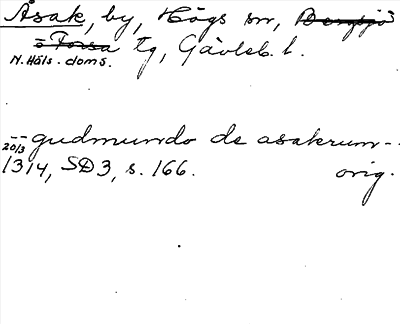 Åsak, by, Högs sn, Bergsjö
o Forsa tg, Gävleb. l.
N. Häls. doms.
-- gudmundo de asakrum --
20/3
1314, SD3, s. 166. orig.